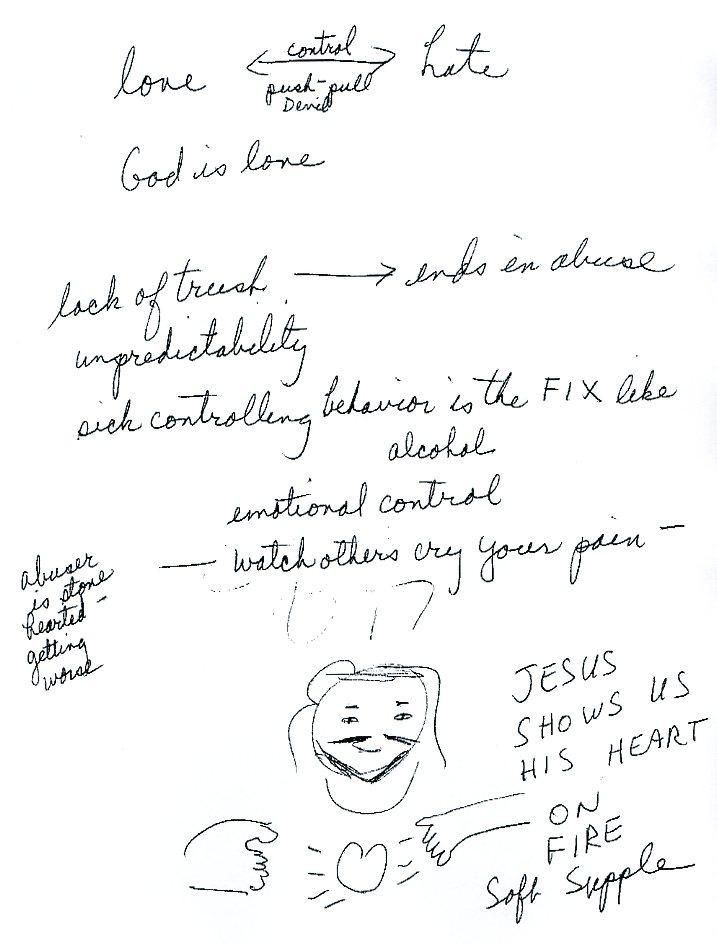 love control hate
push-pull
Devil
God is love
lack of trust → ends in abuse
unpredictability
sick controlling behavior is the FIX like
alcohol
emotional control
— watch others cry your pain —
abuser
is stone
hearted -
getting
worse
JESUS
SHOWS US
HIS HEART
ON
FIRE
Soft Supple